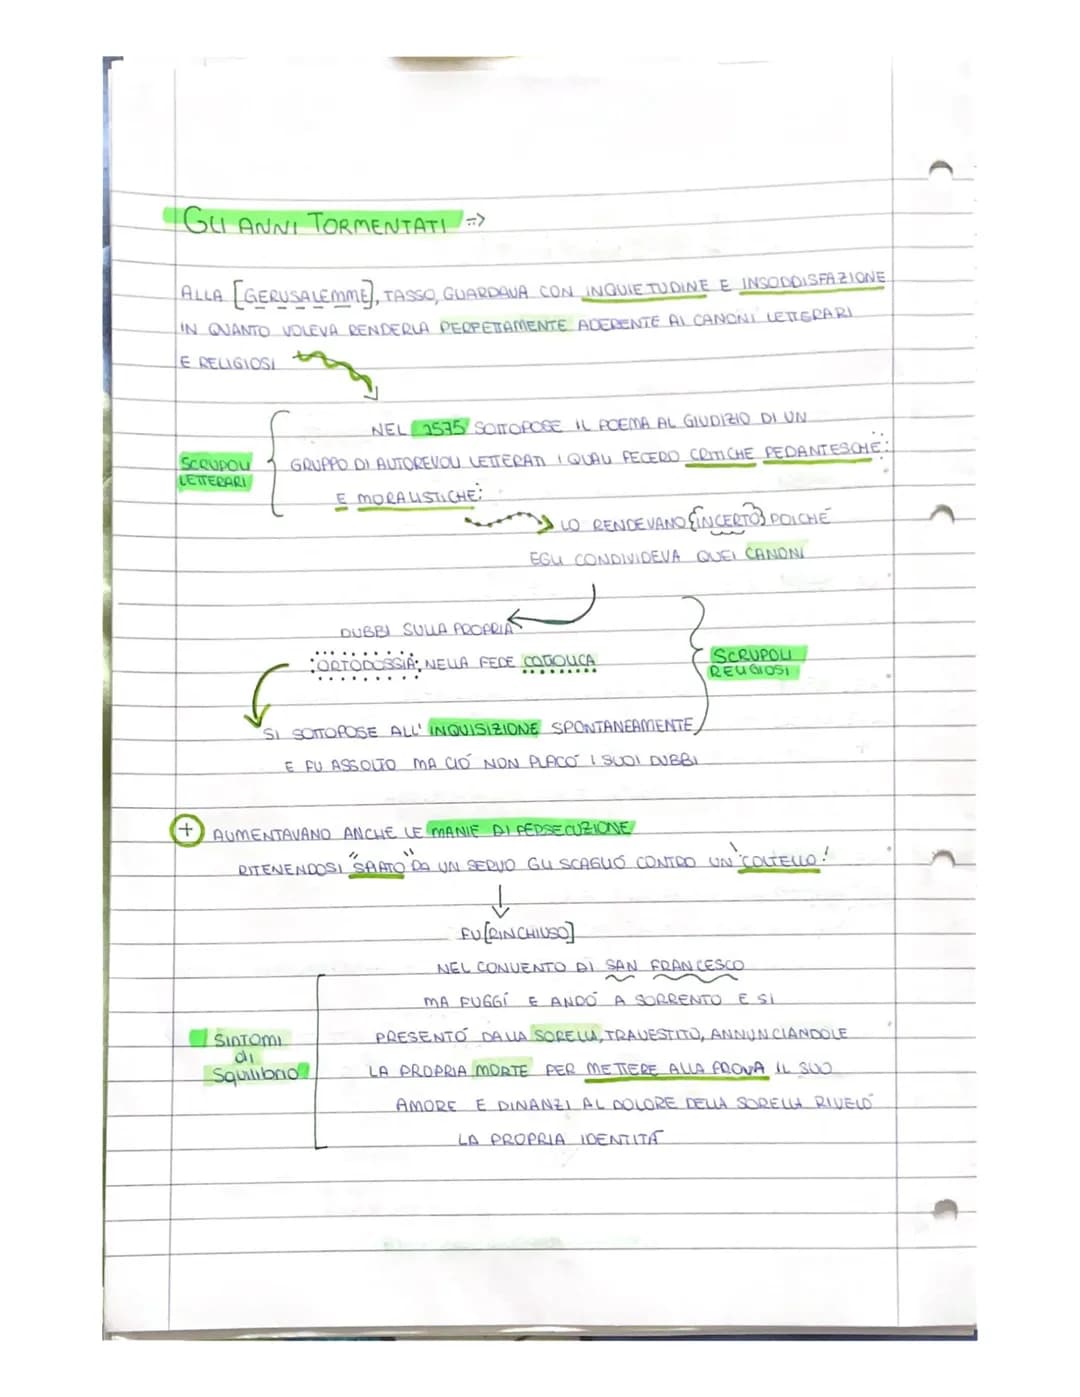 GLI ANNI TORMENTATI =>
ALLA [GERUSALEMME], TASSO, GUARDAVA CON INQUIETUDINE E INSODDISFAZIONE
IN QUANTO VOLEVA RENDERLA PERFETTAMENTE ADERENTE AI CANONI LETTERARI
E RELIGIOSI
NEL 1575 SOTTOPOSE IL POEMA AL GIUDIZIO DI UN
SCRUPOLI
LETTERARI
GRUPPO DI AUTOREVOLI LETTERATI I QUALI FECERO CRITICHE PEDANTESCHE
E MORALISTICHE:
LO RENDEVANO {INCERTO} POICHÉ
EGLI CONDIVIDEVA QUEI CANONI
DUBBI SULLA PROPRIA
ORTODOSSIA NELLA FEDE CATTOLICA
SCRUPOLI
RELIGIOSI
SI SOTTOPOSE ALL' INQUISIZIONE SPONTANEAMENTE
E FU ASSOLTO MA CIÓ NON PLACÓ I SUOI DUBBI
+ AUMENTAVANO ANCHE LE MANIE DI PERSECUZIONE
RITENENDOSI "SPIATO" DA UN SERVO GLI SCAGLIÓ CONTRO UN COLTELLO!
FU [RINCHIUSO]
NEL CONVENTO DI SAN FRANCESCO
MA FUGGÍ E ANDÓ A SORRENTO E SI
SINTOMI
di
Squilibrio
PRESENTÓ DALLA SORELLA, TRAVESTITO, ANNUNCIANDOLE
LA PROPRIA MORTE PER METTERE ALLA PROVA IL SUO
AMORE E DINANZI AL DOLORE DELLA SORELLA RIVELÓ
LA PROPRIA IDENTITÁ